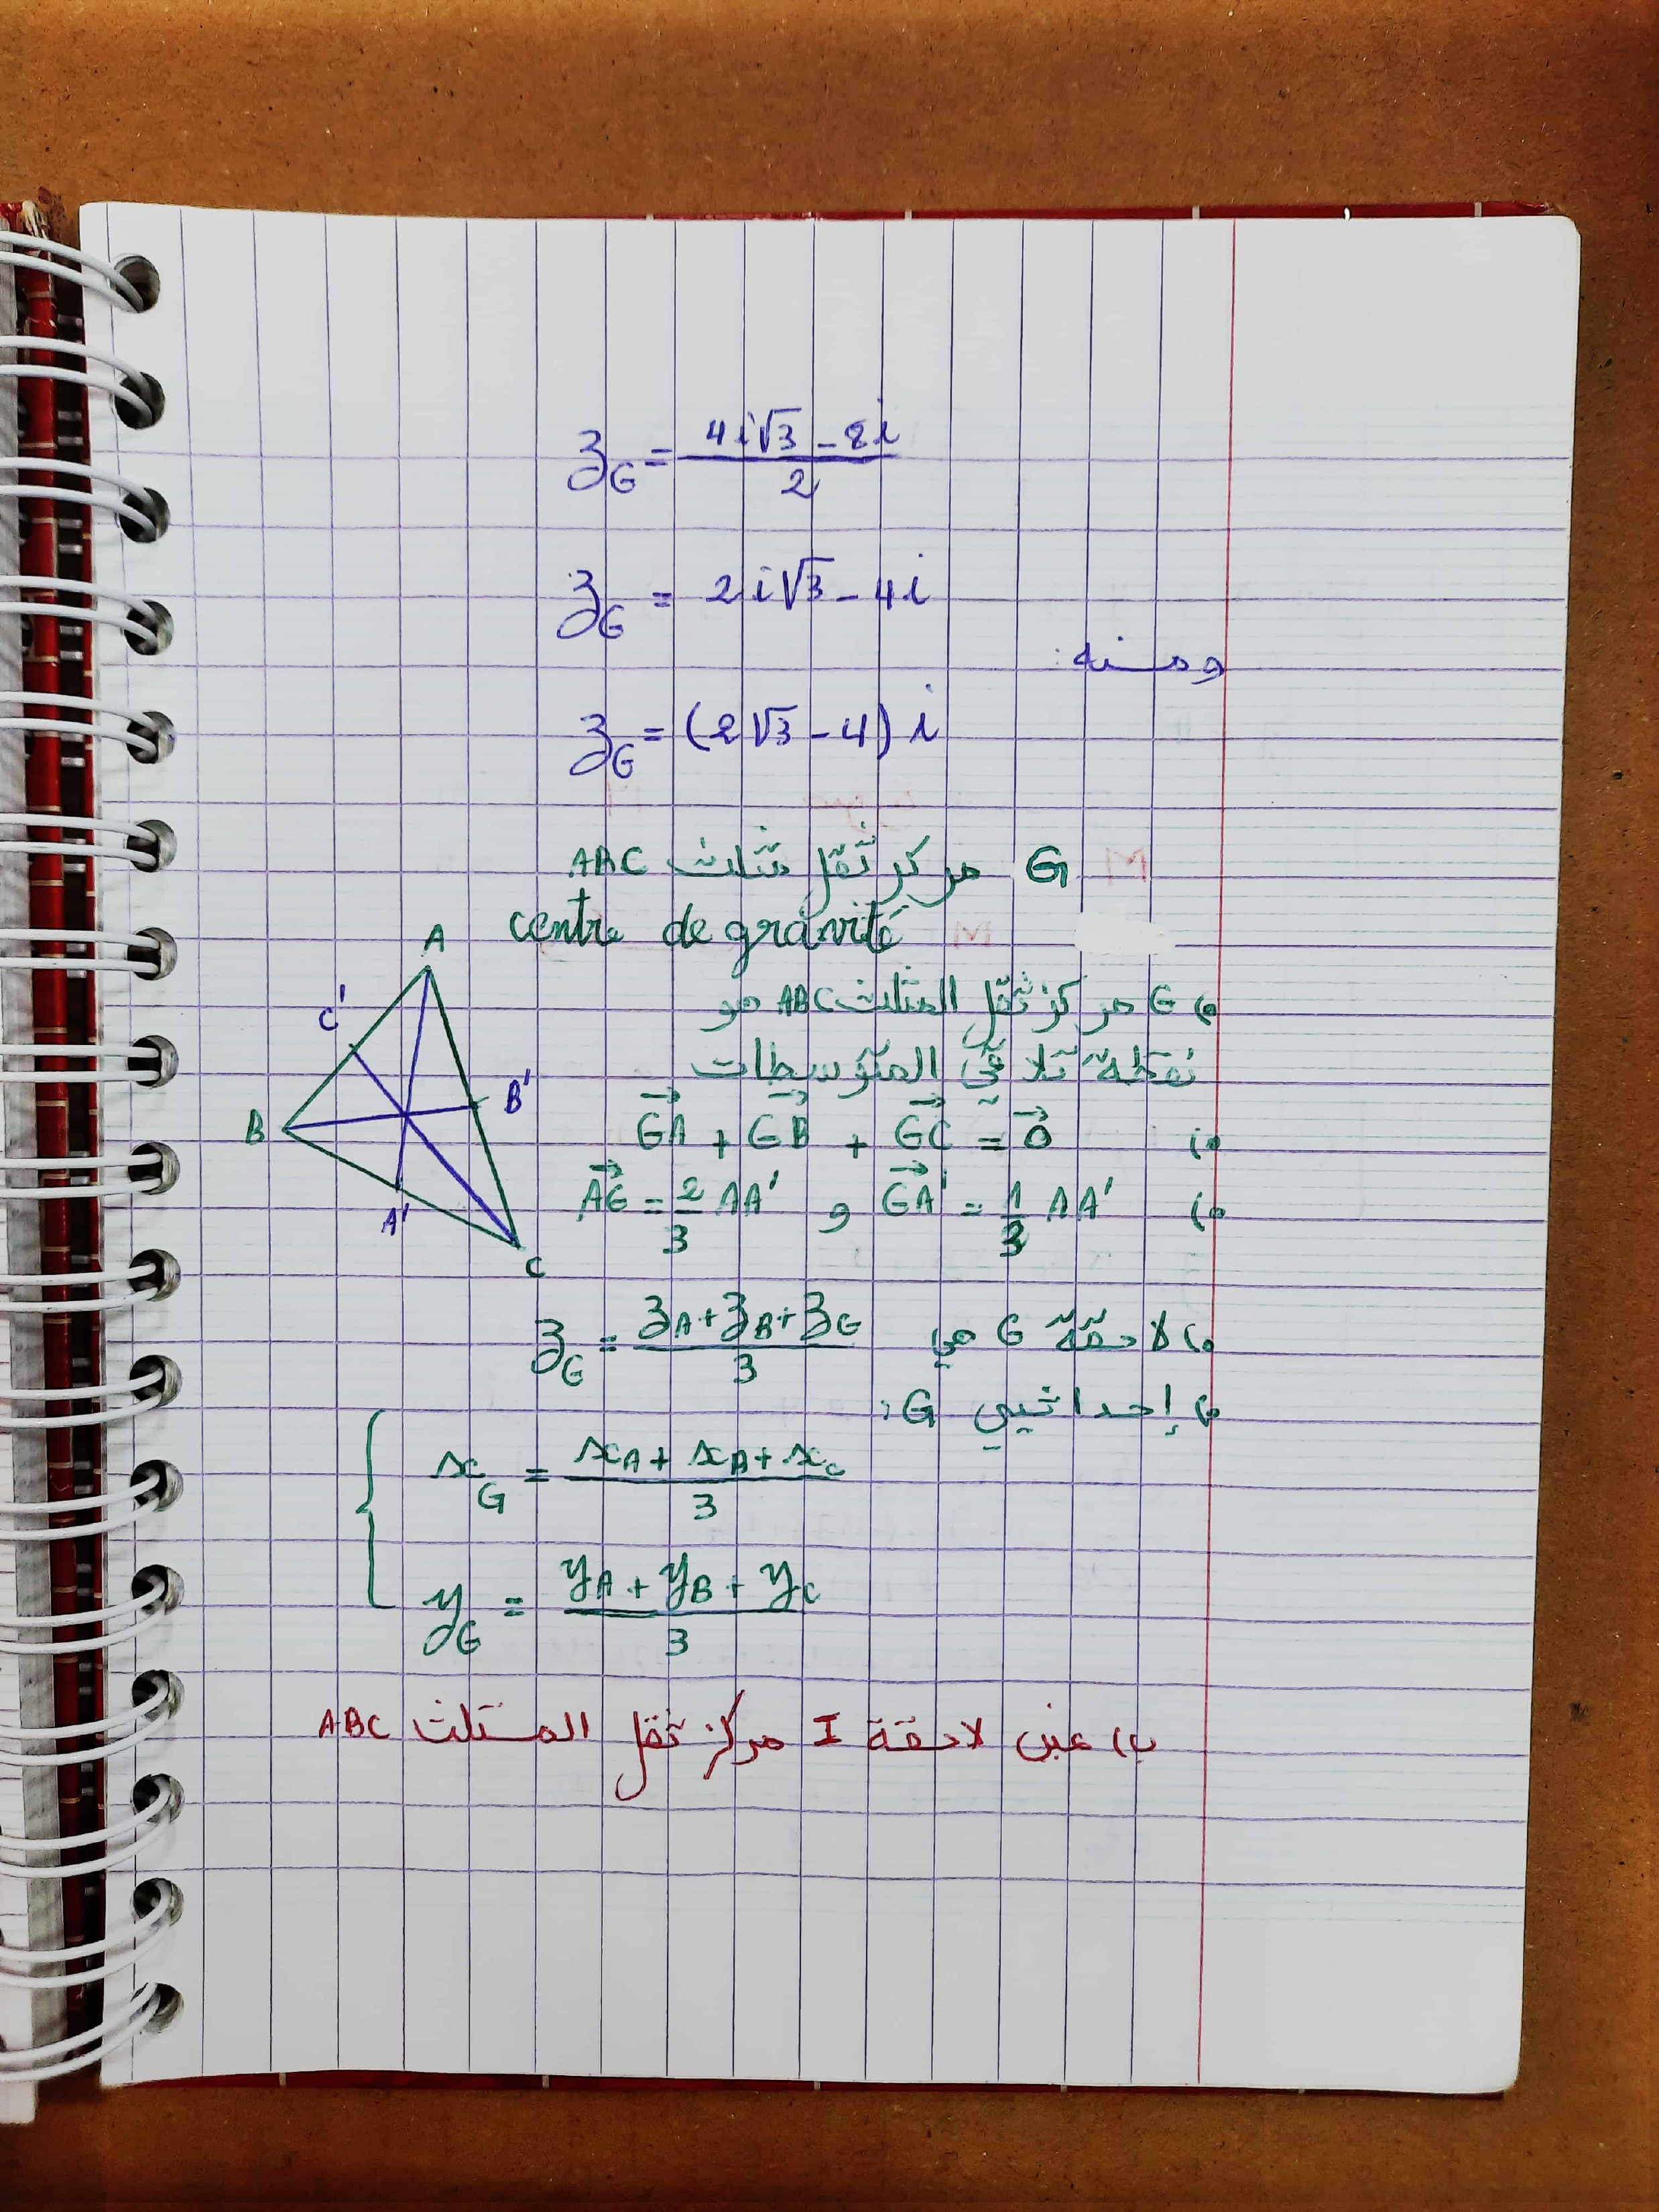 z_G = (4i√3 - 8i)/2
z_G = 2i√3 - 4i
ومنه:
z_G = (2√3 - 4) i
G مركز ثقل مثلث ABC
centre de gravité
•) G مركز ثقل المثلث ABC هو
نقطة تلاقي المتوسطات
•) GA→ + GB→ + GC→ = 0→
•) GA'→ = 1/3 AA' و AG→ = 2/3 AA'
•) لاحقة G هي z_G = (z_A + z_B + z_G)/3
•) إحداثيي G:
x_G = (x_A + x_B + x_C)/3
y_G = (y_A + y_B + y_C)/3
A
C'
B'
B
A'
C
ب) عين لاحقة I مركز ثقل المثلث ABC